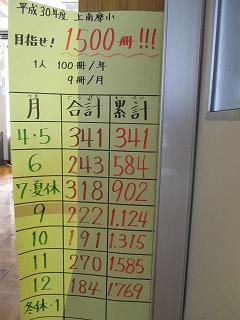 平成30年度 上南摩小
目指せ! 1500冊!!!
1人 100冊/年
9冊/月
月 合計 累計
4・5 341 341
6 243 584
7・夏休 318 902
9 222 1.124
10 191 1.315
11 270 1.585
12 184 1.769
冬休・1